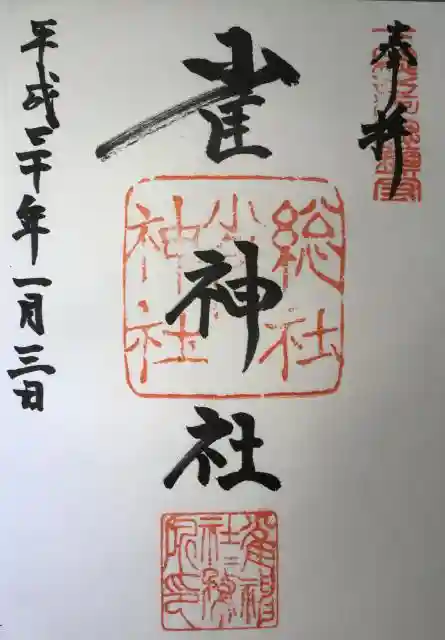 奉拝
雀神社
総社
雀
神社
平成三十年一月三日